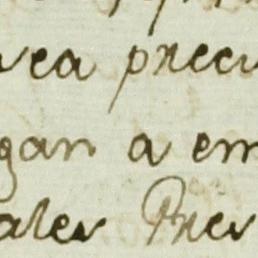 rea preci
gan a em
ales Pres